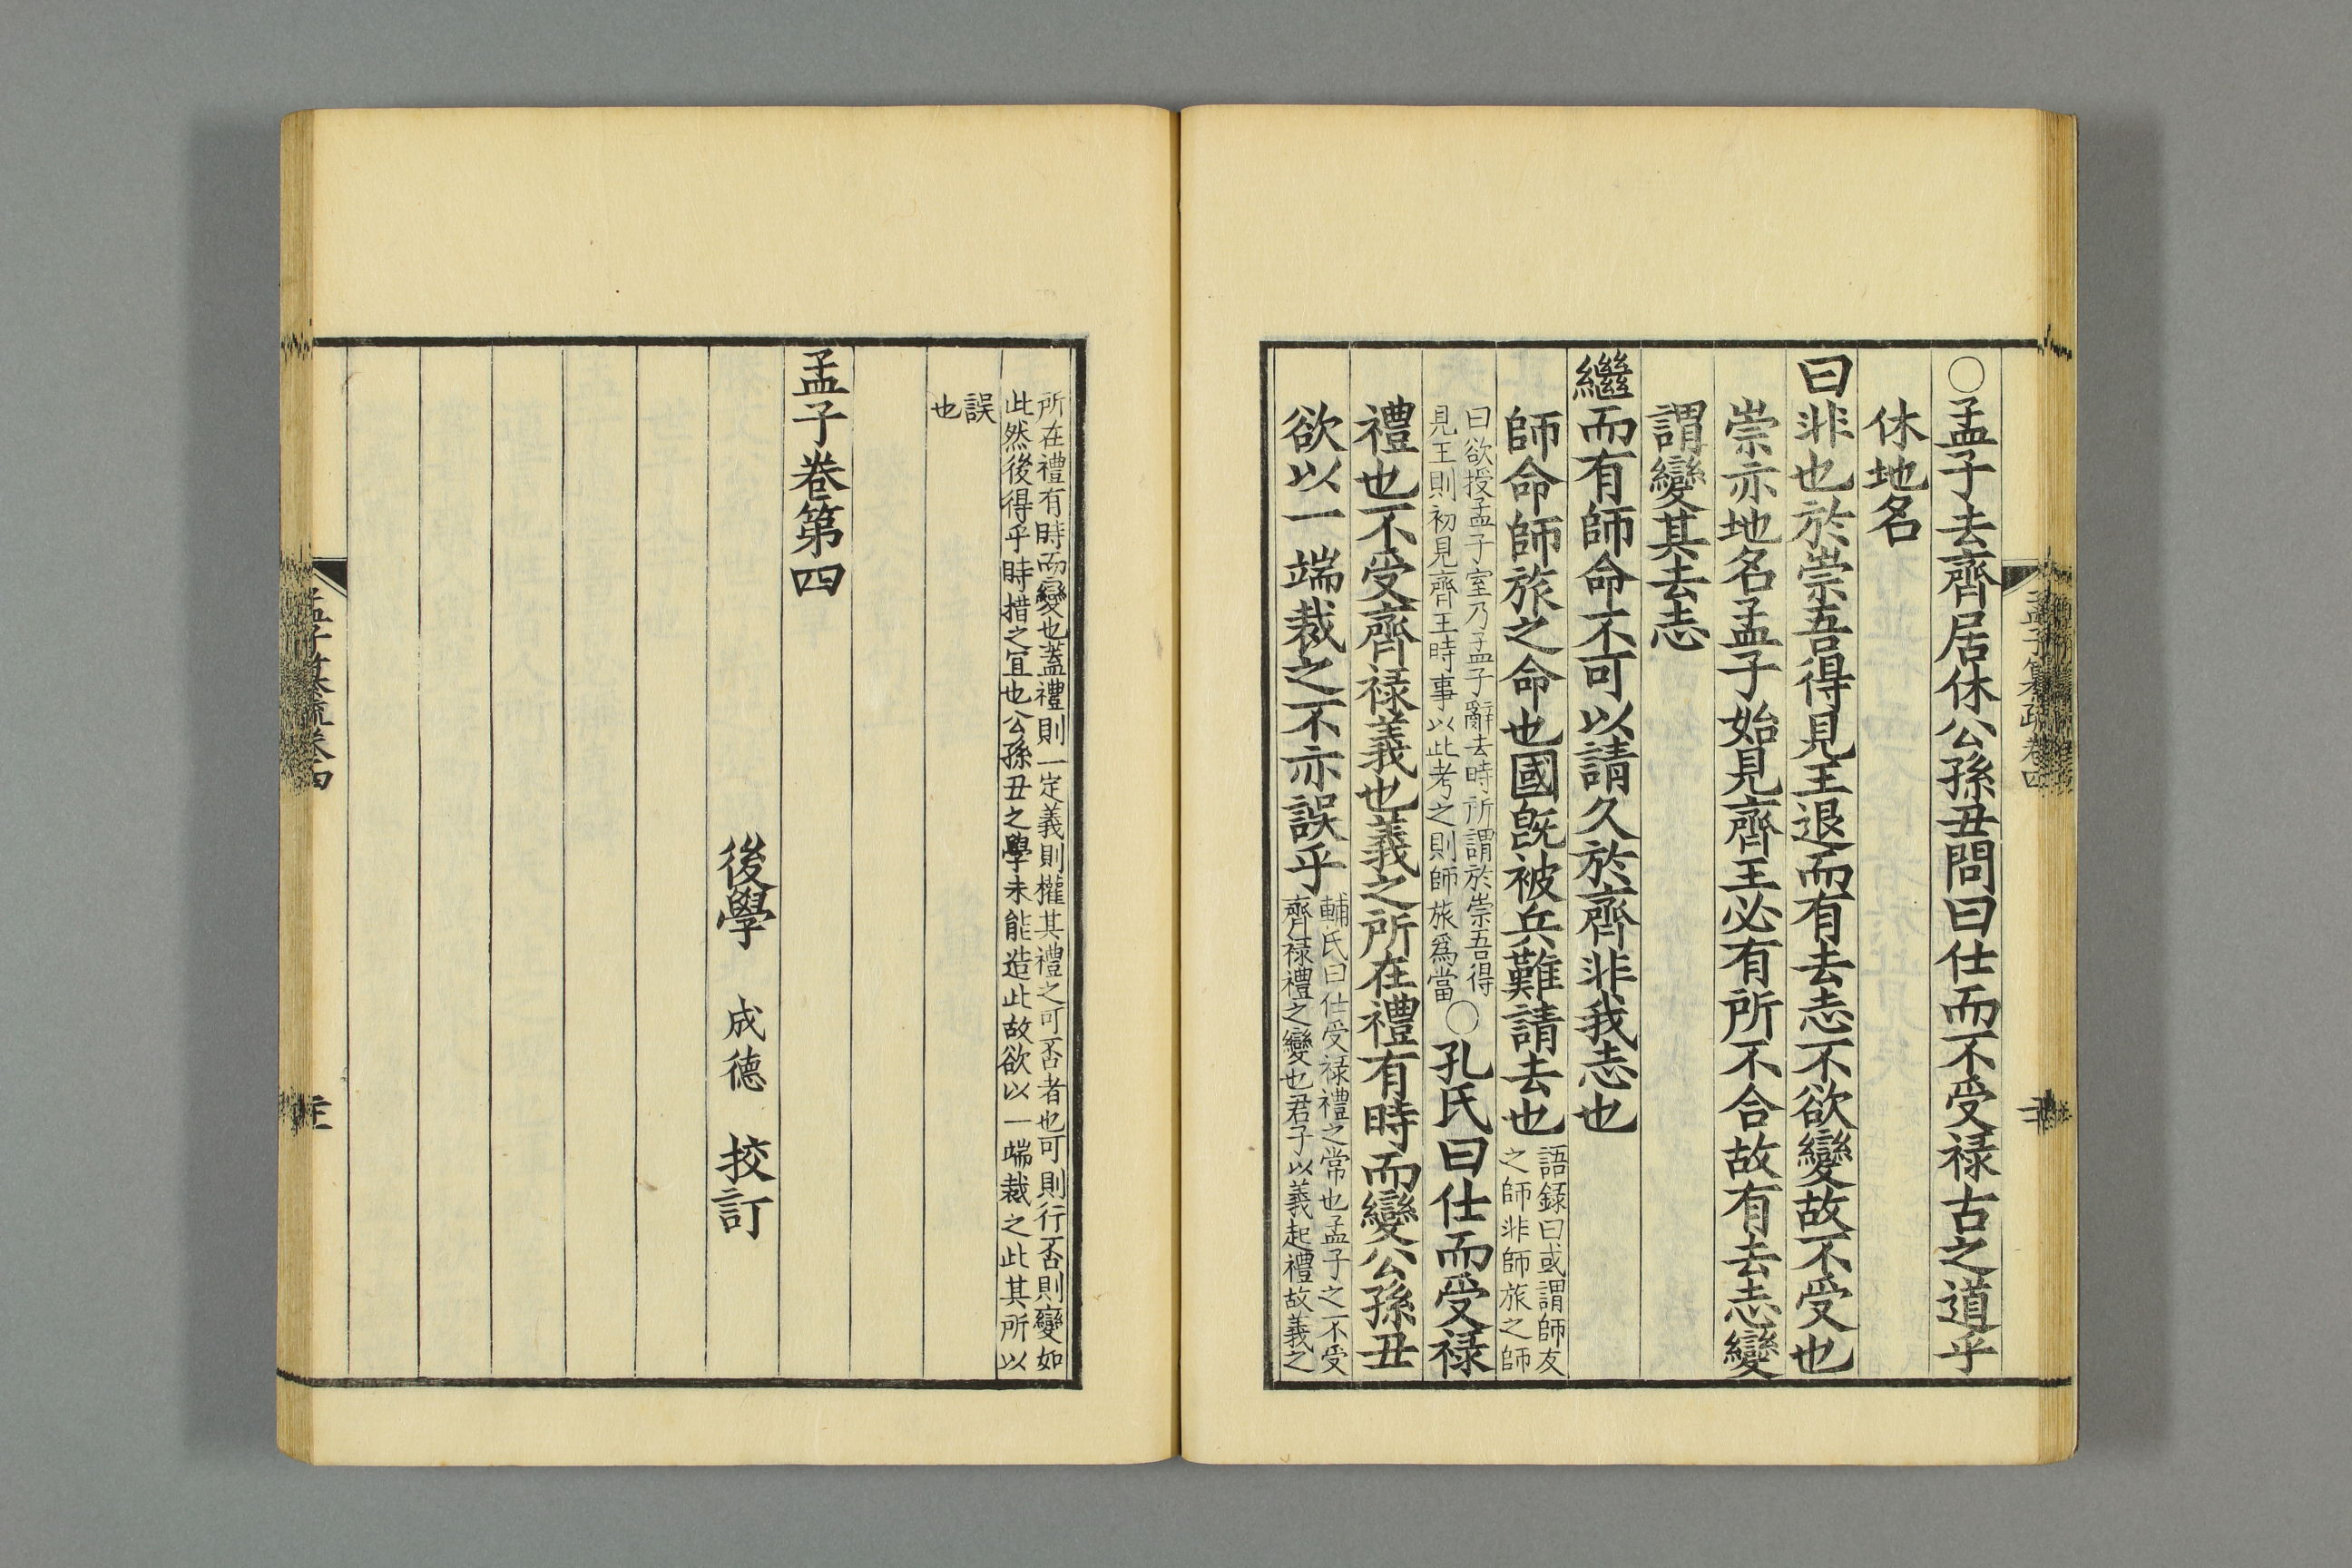 ○孟子去齊居休公孫丑問曰仕而不受祿古之道乎
休地名
曰非也於崇吾得見王退而有去志不欲變故不受也
崇亦地名孟子始見齊王必有所不合故有去志變
謂變其去志
繼而有師命不可以請久於齊非我志也
師命師旅之命也國旣被兵難請去也
語録曰或謂師友
之師非師旅之師
曰欲授孟子室乃孟子辭去時所謂於崇吾得
見王則初見齊王時事以此考之則師旅爲當
○孔氏曰仕而受祿
禮也不受齊祿義也義之所在禮有時而變公孫丑
欲以一端裁之不亦誤乎
輔氏曰仕受祿禮之常也孟子之不受
齊祿禮之變也君子以義起禮故義之
孟子纂疏卷四
所在禮有時而變也蓋禮則一定義則權其禮之可否者也可則行否則變如
此然後得乎時措之宜也公孫丑之學未能造此故欲以一端裁之此其所以
誤
也
孟子卷第四
後學 成德 挍訂
孟子纂疏卷四